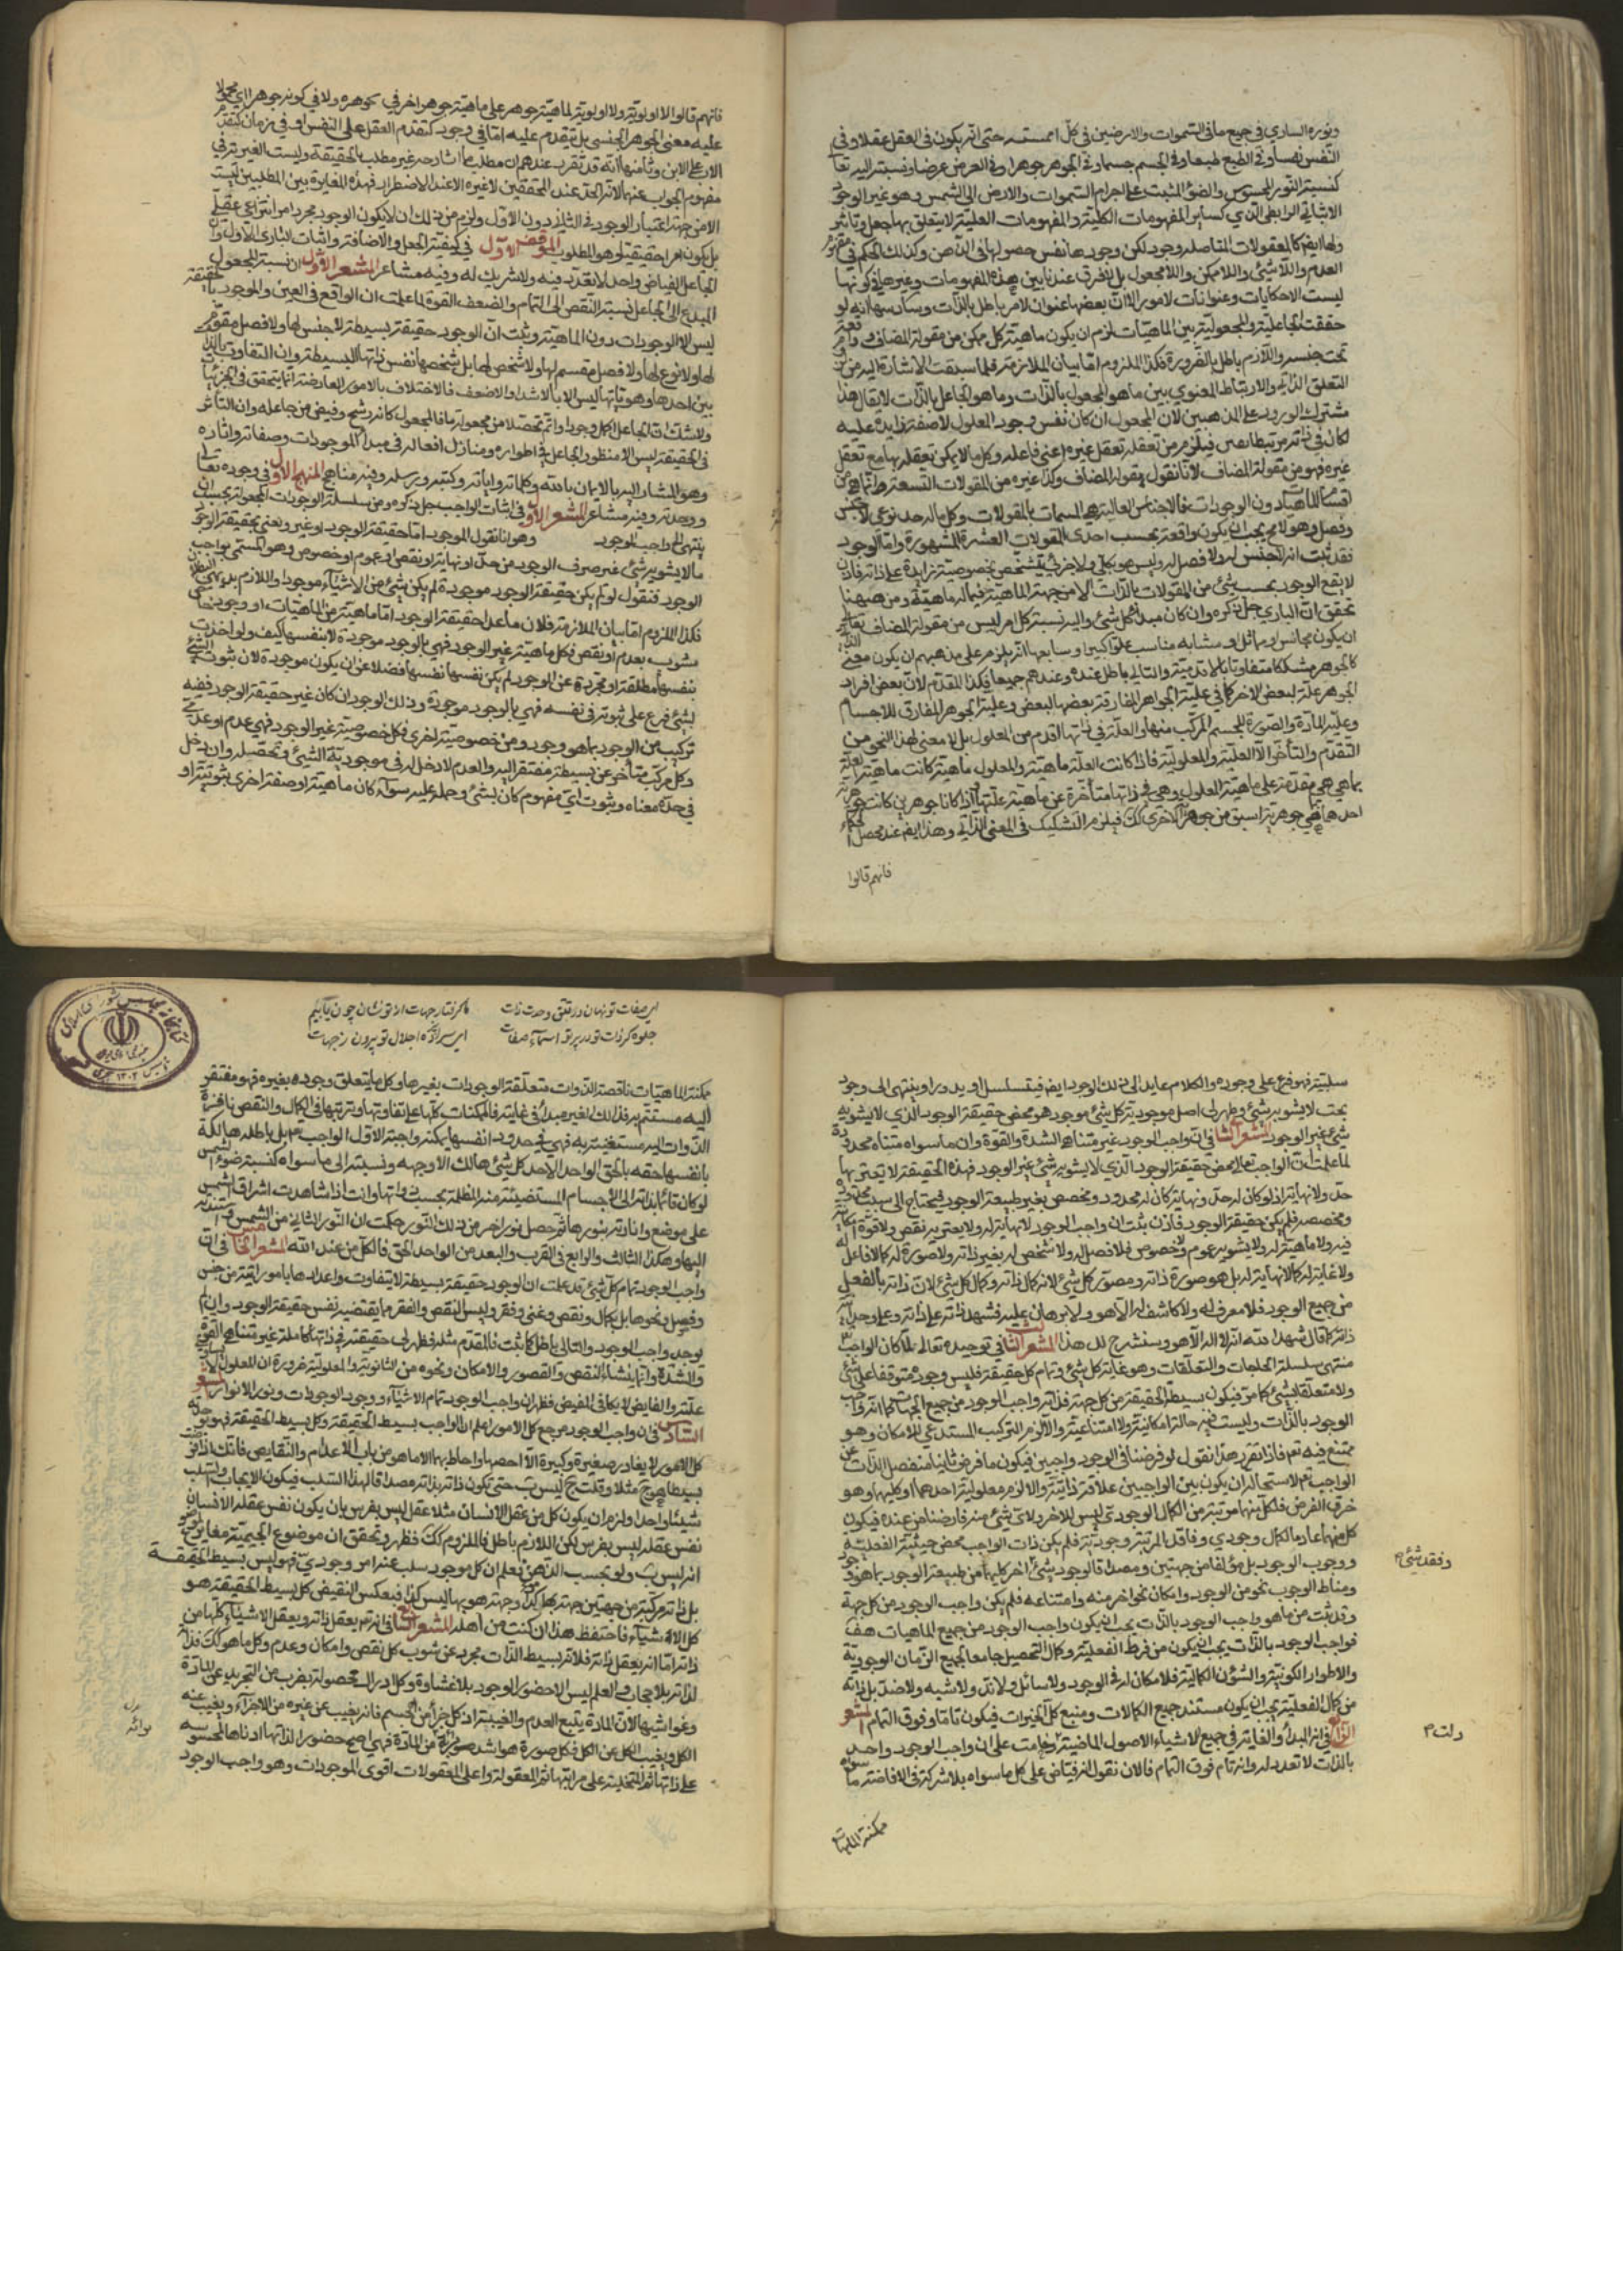 ونوره الساري في جميع ما في السموات والارضين في كل بحسبه حتى انه يكون في العقل عقلا وفي
النفس نفسا وفي الطبع طبعا وفي الجسم جسما وفي الجوهر جوهرا وفي العرض عرضا ونسبته اليه تعا
كنسبة النور المحسوس والضوء المثبت على اجرام السموات والارض الى الشمس وهو غير الوجود
الاثباتي الرابطي الذي كساير المفهومات الكلية والمفهومات العقلية لا يتعلق بها جعل وتاثير
ولها ايضا كالمعقولات المتاصله وجود لكن وجودها نفس حصولها في الذهن وكذلك الحكم في مفهوم
العدم واللا شئ واللا ممكن واللا مجعول بل لا فرق عندنا بين هذه المفهومات وغيرها في كونها
ليست الا حكايات وعنوانات لامور الا ان بعضها عنوان لامر باطل بالذات وسادسها انه لو
تحققت الجاعلية والمجعولية بين الماهيات لزم ان يكون ماهية كل ممكن من مقولة المضاف واقعة
تحت جنسه واللازم باطل بالضرورة فكذا الملزوم اما بيان الملازمة فلما سبقت الاشارة اليه من
التعلق الذاتي والارتباط المعنوي بين ما هو المجعول بالذات وما هو الجاعل بالذات لا يقال هذا
مشترك الورود على المذهبين لان المجعول ان كان نفس وجود المعلول لا صفة زايدة عليه
لكان في ذاته مرتبطا بغيره فيلزم من تعقله تعقل غيره اعني فاعله وكل ما لا يمكن تعقله الا مع تعقل
غيره فهو من مقولة المضاف لانا نقول مقولة المضاف وكذا غيره من المقولات التسعة انما هي من
اقسام الماهيات دون الوجودات فالاجناس العالية هي المسماة بالمقولات وكل ما له حد نوعي له جنس
وفصل وهو لا مح يجب ان يكون واقعة تحسب احدى المقولات العشرة المشهورة واما الوجود
فقد ثبت انه لا جنس له ولا فصل له وليس هو بكلي ولا جزئي يتشخص بخصوصية زايدة على ذاته فاذن
لا يقع الوجود تحسب شئ من المقولات بالذات الا من جهة الماهية فيما له ماهية ومن ههنا
تحقق ان الباري جل ذكره وان كان مبدء كل شئ واليه نسبة كل امر ليس من مقولة المضاف تعالى
ان يكون له مجانس او مماثل او مشابه او مناسب علوا كبيرا وسابعها انه يلزم على مذهبهم ان يكون معنى
كالجوهر مشككا متفاوتا بالاقدمية والتالي باطل عنده وعندهم جميعا فكذا المقدم لان بعض افراد
الجوهر علة لبعض الاخر كما في علية الجواهر المفارقة بعضها لبعض وعلية الجوهر المفارق للاجسام
وعلية المادة والصورة للجسم المركب منهما والعلة في ذاتها اقدم من المعلول بل لا معنى لهذا النحو من
التقدم والتاخر الا العلية والمعلولية فاذا كانت العلة ماهية والمعلول ماهية كانت ماهية العلة
بما هي هي متقدمة على ماهية المعلول وهي في ذاتها متاخرة عن ماهية علتها فاذا كانا جوهرين كانت جوهرية
احدهما هي جوهرية اسبق من جوهرية الاخرى كك فيلزم التشكيك في المعنى الذاتي وهذا ايضا عند محصلي الحكماء
فانهم قالوا
فانهم قالوا لا اولوية ولا اولوية لماهية جوهر على ماهية جوهر اخر في تجوهره ولا في كونه جوهرا اي محمولا
عليه معنى الجوهر الجنسي بل يتقدم عليه اما في وجوده كتقدم العقل على النفس او في زمان كتقدم
الاب على الابن وثامنها انه قد تقرر عندهم ان مطلب ما الشارحة غير مطلب ما الحقيقة وليست الغيرية في
مفهوم الجواب عنهما لانه الحد عند المحققين لا غيره الا عند الاضطرار فهذه المغايرة بين المطلبين ليست
الا من جهة اعتبار الوجود في الثاني دون الاول ولزم من ذلك ان لا يكون الوجود مجرد امر انتزاعي عقلي
بل يكون امرا حقيقيا وهو المطلوب الموقف الاول في كيفية الجعل والافاضة واثبات الباري الاول وان
الجاعل الفياض واحد لا تعدد فيه ولا شريك له وفيه مشاعر المشعر الاول ان نسبة المجعول
المبدع الى الجاعل نسبة النقص الى التمام والضعف الى القوة لما علمت ان الواقع في العين والموجود بالحقيقة
ليس الا الوجودات دون الماهية وثبت ان الوجود حقيقة بسيطة لا جنس لها ولا فصل مقوم
لها ولا نوع لها ولا فصل مقسم لها ولا تشخص لها بل تشخصها نفس ذاتها البسيطة وان التفاوت بالذات
بين احادها وهوياتها ليس الا بالاشد والاضعف فالاختلاف بالامور العارضة انما يتحقق في الجزئيات
ولا شك ان الجاعل اكمل وجودا واتم تحصلا من مجعوله فالمجعول كانه رشح وفيض من جاعله وان التاثير
في الحقيقة ليس الا منظور الجاعل في اطواره ومنازل افعاله في مبدا الموجودات وصفاته واثاره
وهو المشار اليه بالايمان بالله وكلماته واياته وكتبه ورسله وفيه مناهج المنهج الاول في وجوده تعالى
ووحدته وفيه مشاعر المشعر الاول في اثبات الواجب جل ذكره ومن سلسلة الوجودات المجعولة يجب ان
ينتهى الى واجب الوجود وهو انا نقول الموجود اما حقيقة الوجود او غيره ونعني بحقيقة الوجود
ما لا يشوبه شئ غير صرف الوجود من حد او نهاية او نقص او عموم او خصوص وهو المسمى بواجب
الوجود فنقول لو لم يكن حقيقة الوجود موجودة لم يكن شئ من الاشياء موجودا واللازم بديهي البطلان
فكذا الملزوم اما بيان الملازمة فلان ما عدا حقيقة الوجود اما ماهية من الماهيات او وجود خاص
مشوب بعدم او نقص فكل ماهية غير الوجود فهي بالوجود موجودة لا بنفسها كيف ولو اخذت
بنفسها مطلقة او مجردة عن الوجود لم يكن نفسها نفسها فضلا عن ان يكون موجودة لان ثبوت شئ
لشئ فرع على ثبوته في نفسه فهي بالوجود موجودة وذلك الوجود ان كان غير حقيقة الوجود ففيه
تركيب من الوجود بما هو وجود ومن خصوصية اخرى فكل خصوصية غير الوجود فهي عدم او عدمي
وكل مركب متاخر عن بسيطه مفتقر اليه والعدم لا دخل له في موجودية الشئ وتحصله وان دخل
في حده ومعناه وثبوت اي مفهوم كان لشئ وحمله عليه سواء كان ماهية او صفة اخرى ثبوتية او
سلبية فهو فرع على وجوده والكلام عايد الى ذلك الوجود ايضا فيتسلسل او يدور او ينتهى الى وجود
بحت لا يشوبه شئ وظهر ان اصل موجودية كل شئ موجود هو محض حقيقة الوجود الذي لا يشوبه
شئ غير الوجود المشعر الثاني في ان واجب الوجود غير متناهي الشدة والقوة وان ما سواه متناه محدود
لما علمت ان الواجب تعالى محض حقيقة الوجود الذي لا يشوبه شئ غير الوجود فهذه الحقيقة لا يعتريها
حد ولا نهاية اذ لو كان له حد ونهاية كان له تحدد وتخصص بغير طبيعة الوجود فيحتاج الى سبب يحدده
ومخصصه فلم يكن حقيقة الوجود فاذن ثبت ان واجب الوجود لا نهاية له ولا يعتريه نقص ولا قوة امكانية
فيه ولا ماهية له ولا يشوبه عموم ولا خصوص فلا فصل له ولا تشخص له بغير ذاته ولا صورة له كما لا فاعل له
ولا غاية له كما لا نهاية له بل هو صورة ذاته ومصور كل شئ لانه كمال ذاته وكمال كل شئ لان ذاته بالفعل
من جميع الوجود فلا معرف له ولا كاشف له الا هو ولا برهان عليه فشهد ذاته على ذاته وعلى وحدانية
ذاته كما قال شهد الله انه لا اله الا هو وسنشرح لك هذا المشعر الثالث في توحيده تعالى لما كان الواجب تعالى
منتهى سلسلة الحاجات والتعلقات وهو غاية كل شئ وتمام كل حقيقة فليس وجوده متوقفا على شئ
ولا متعلقا بشئ كما مر فيكون بسيط الحقيقة من كل جهة فذاته واجب الوجود من جميع الجهات كما انه واجب
الوجود بالذات وليست فيه جهة امكانية ولا امتناعية والا لزم التركيب المستدعي للامكان وهو
ممتنع فيه تعم فاذا تقرر هذا نقول لو فرضنا في الوجود واجبين فيكون ما فرض ثانيا منفصل الذات عن
الواجب تع لاستحالة ان يكون بين الواجبين علاقة ذاتية والا لزم معلولية احدهما او كليهما وهو
خرق الفرض فلكل منهما مرتبة من الكمال الوجودي ليس للاخر ولا شئ منه فايضا من عنده فيكون
كل منهما عادما لكمال وجودي وفاقد لمرتبة وجودية فلم يكن ذات الواجب محض حيثية الفعلية
ووجوب الوجود بل مؤلفا من جهتين ومصداقا لوجود شئ وفقد شئ اخر كليهما من طبيعة الوجود بما هو وجود
ومناط الوجوب نحو من الوجود وامكان نحو اخر منه وامتناعه فلم يكن واجب الوجود من كل جهة
وقد ثبت من ما هو واجب الوجود بالذات يجب ان يكون واجب الوجود من جميع الماهيات هف
فواجب الوجود بالذات يجب ان يكون من فرط الفعلية وكمال التحصيل جامعا لجميع النشات الوجودية
والاطوار الكونية والشئون الكمالية فلا مكافئ له في الوجود ولا مماثل ولا ند ولا شبه ولا ضد بل ذاته
من كمال الفعلية يجب ان يكون مستند جميع الكمالات ومنبع كل الخيرات فيكون تاما وفوق التمام المشعر
الرابع في انه المبدأ والغاية في جميع الاشياء الاصول الماضية دلت وقامت على ان واجب الوجود واحد
بالذات لا تعدد له وانه تام فوق التمام فالان نقول انه فياض على كل ما سواه بلا شركة في الافاضة فان ما سواه
وفقد شئ
دلت
ممكنة الماهيات
اي صفات تو نهان در تتق وحدت ذات
جلوه گر ذات تو در پرتو اسماء صفات
ما گرفتار جهات از تو نشان چون يابيم
اي سراپرده اجلال تو بيرون ز جهات
ممكنة الماهيات ناقصة الذوات متعلقة الوجودات بغيرها وكل ما يتعلق وجوده بغيره فهو مفتقر
اليه مستتم به فذلك الغير مبدأه وغايته فالممكنات كلها على تفاوتها وترتبها في الكمال والنقص فاقرة
الذوات اليه مستغنية به فهي في حدود انفسها ممكنة واجبة بالاول الواجب تع بل باطلة هالكة
بانفسها حقة بالحق الواحد الاحد كل شئ هالك الا وجهه ونسبته الى ما سواه كنسبة ضوء الشمس
لو كان قائما بذاته الى الاجسام المستضيئة منه المظلمة بحسب ذاتها وانت اذا شاهدت اشراق الشمس
على موضع وانارته بنورها ثم حصل نور اخر من ذلك النور حكمت ان النور الثاني من الشمس واسندته
اليها وهكذا الثالث والرابع في القرب والبعد من الواحد الحق فالكل من عند الله المشعر الخامس في ان
واجب الوجود تمام كل شئ قد علمت ان الوجود حقيقة بسيطة لا يتفاوت اعدادها بامور ذاتية من جنس
وفصل ونحوها بل بكمال ونقص وغنى وفقر وليس النقص والفقر مما يقتضيه نفس حقيقة الوجود والا لم
يوجد واجب الوجود والتالي باطل كما ثبت فالمقدم مثله فظهر ان حقيقته في ذاتها كاملة غير متناهي القوة
والشدة وانما ينشاء النقص والقصور والامكان ونحوه من الثانوية والمعلولية ضرورة ان المعلول لا يساوي
علته والفايض لا يكافي المفيض فظهر ان واجب الوجود تمام الاشياء ووجود الوجودات ونور الانوار المشعر
السادس في ان واجب الوجود مرجع كل الامور اعلم ان الواجب بسيط الحقيقة وكل بسيط الحقيقة فهو بوحدته
كل الامور لا يغادر صغيرة وكبيرة الا احصها واحاط بها الا ما هو من باب الاعدام والنقايص فانك اذا فرضت
بسيطا هو ج مثلا وقلت ج ليس ب حتى تكون ذاته بذاته مصداقا لهذا السلب فيكون الايجاب والسلب
شيئا واحدا ولزم ان يكون كل من عقل الانسان مثلا عقل ليس بفرس بان يكون نفس عقله الانسان
نفس عقله ليس بفرس لكن اللازم باطل فالملزوم كك فظهر وتحقق ان موضوع الجيمية مغاير لموضوع
انه ليس ب ولو بحسب الذهن فعلم ان كل موجود سلب عنه امر وجودي فهو ليس بسيط الحقيقة
بل ذاته مركبة من جهتين جهة بها هو كذا وجهة هو بها ليس كذا فبعكس النقيض كل بسيط الحقيقة هو
كل الاشياء فاحتفظ هذا ان كنت من اهله المشعر السابع في انه تعم يعقل ذاته ويعقل الاشياء كلها من
ذاته اما انه يعقل ذاته فلانه بسيط الذات مجرد عن شوب كل نقص وامكان وعدم وكل ما هو كك فذاته
لذاته بلا حجاب والعلم ليس الا حضور الوجود بلا غشاوة وكل ادراك فحصوله بضرب من التجريد عن المادة
وغواشيها لان المادة منبع العدم والغيبة اذ كل جزء من الجسم فانه يغيب عن غيره من الاجزاء ويغيب عنه
الكل ويغيب الكل عن الكل فكل صورة هو اشد براءة من المادة فهي اصح حضورا لذاتها ادناها المحسوسة
على ذاتها ثم المتخيلة على مراتبها ثم المعقولة واعلى المعقولات اقوى الموجودات وهو واجب الوجود